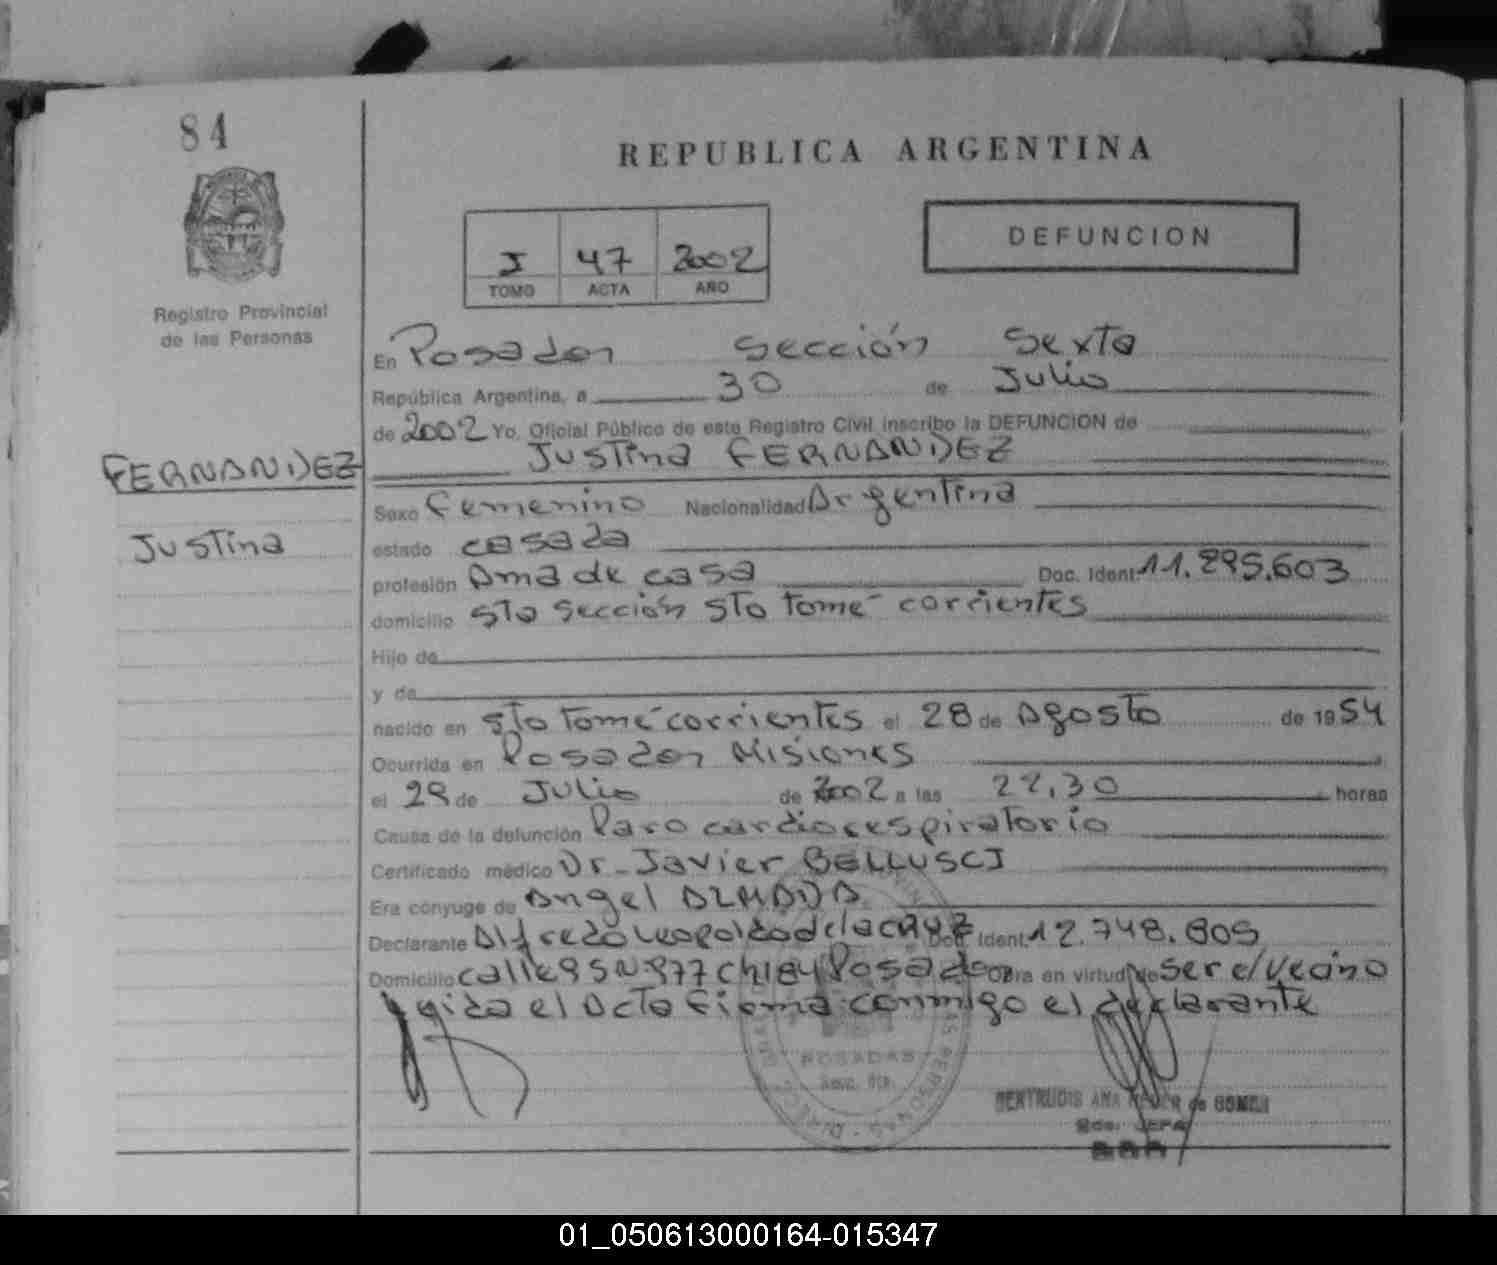 84
REPUBLICA ARGENTINA
Registro Provincial
de las Personas
I 47 2002
TOMO ACTA AÑO
DEFUNCION
En Posadas Sección Sexta
República Argentina, a 30 de Julio
de 2002 Yo, Oficial Público de este Registro Civil inscribo la DEFUNCION de
FERNANDEZ
Justina FERNANDEZ
Sexo Femenino Nacionalidad Argentina
Justina
estado casada
profesión Ama de casa Doc. Ident. 11.895.603
domicilio 5ta Sección Sto tomé corrientes
Hijo de
y de
nacido en Sto tomé corrientes el 28 de Agosto de 1954
Ocurrida en Posadas Misiones
el 29 de Julio de 2002 a las 22,30 horas
Causa de la defunción Paro cardiorespiratorio
Certificado médico Dr. Javier BELLUSCI
Era cónyuge de Angel ALMADA
Declarante Alfredo Leopoldo de la cruz Doc. Ident. 12.748.805
Domicilio calle 95 N 977 Ch 184 Posadas Obra en virtud de Ser el Vecino
el Acta firma conmigo el declarante
POSADAS
Secc. 6ta.
GERTRUDIS ANA de GOMEZ
JEFA
01_050613000164-015347